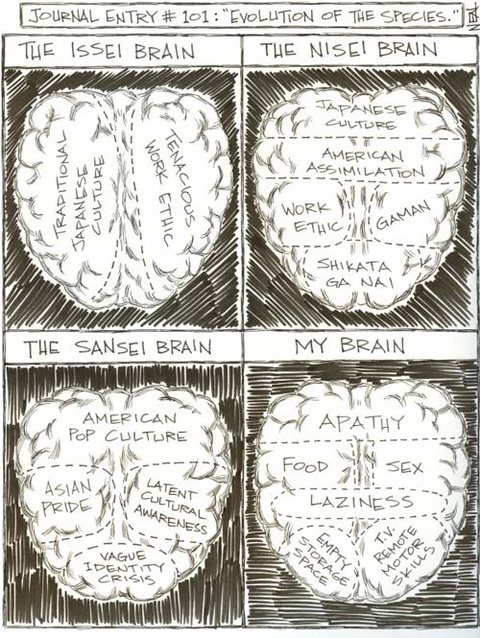 JOURNAL ENTRY # 101: "EVOLUTION OF THE SPECIES."
THE ISSEI BRAIN
TRADITIONAL
JAPANESE
CULTURE
TENACIOUS
WORK ETHIC
THE NISEI BRAIN
JAPANESE
CULTURE
AMERICAN
ASSIMILATION
WORK
ETHIC
GAMAN
SHIKATA
GA NAI
THE SANSEI BRAIN
AMERICAN
POP CULTURE
ASIAN
PRIDE
LATENT
CULTURAL
AWARENESS
VAGUE
IDENTITY
CRISIS
MY BRAIN
APATHY
FOOD
SEX
LAZINESS
EMPTY
STORAGE
SPACE
T.V.
REMOTE
MOTOR
SKILLS